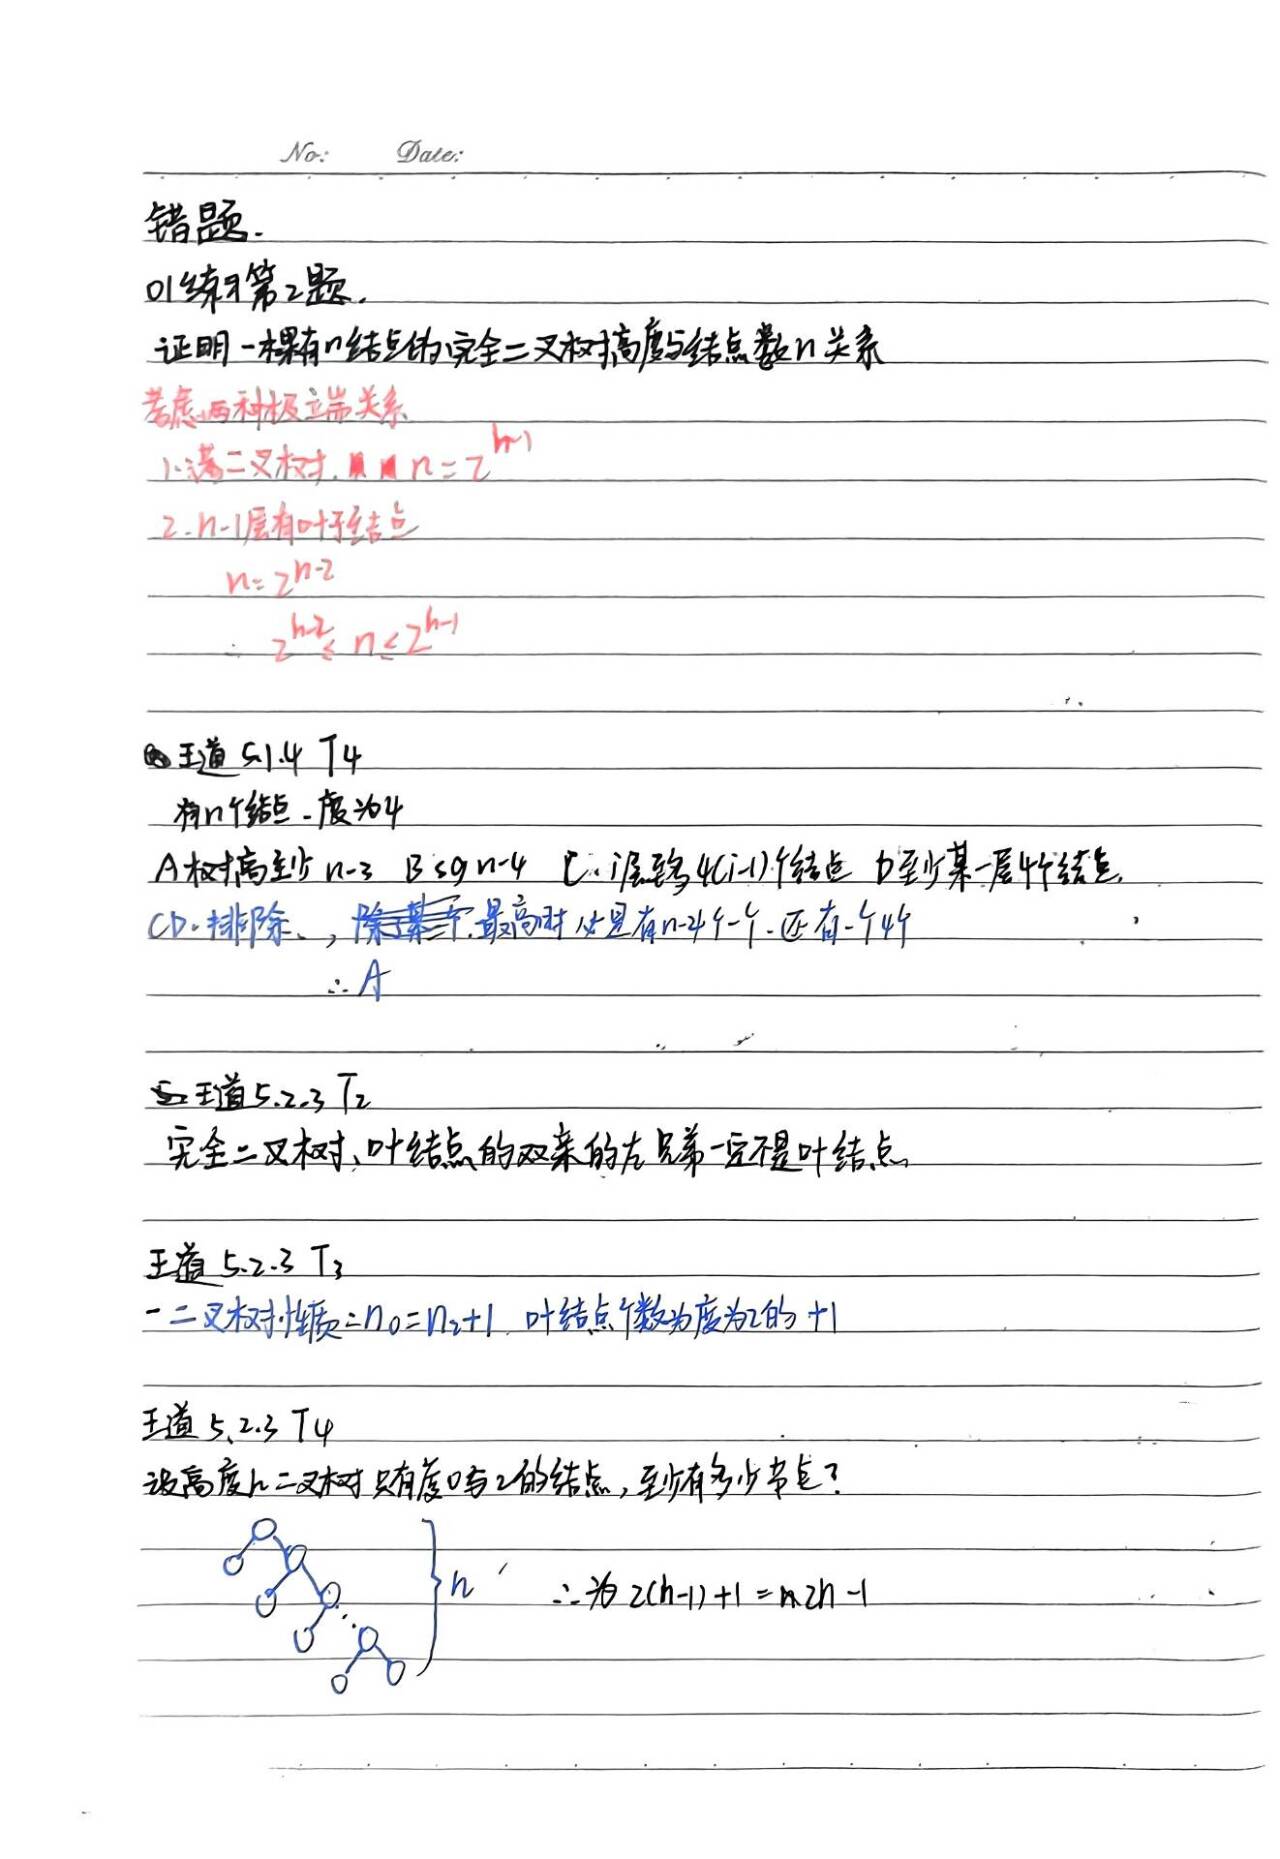 No: Date:
错题.
01练习第2题.
证明一棵有n结点的完全二叉树高度与结点数n关系
考虑两种极端关系
1.满二叉树. n=2^{h-1}
2.h-1层有叶子结点
n=2^{h-2}
∴ 2^{h-2}≤n≤2^{h-1}
王道 5.1.4 T4
有n个结点.度为4
A树高至多 n-3 B n-4 C. i层至多4(i-1)个结点 D至少某一层4个结点.
CD.排除、, 最高时 必是有n-4个一个.还有一个4个
∴A
王道5.2.3 T2
完全二叉树、叶结点的双亲的左兄弟一定不是叶结点
王道 5.2.3 T3
二叉树性质=n₀=n₂+1 叶结点个数为度为2的+1
王道 5.2.3 T4
设高度h二叉树只有度0与2的结点，至少有多少节点？
h ∴为 2(h-1)+1=2h-1